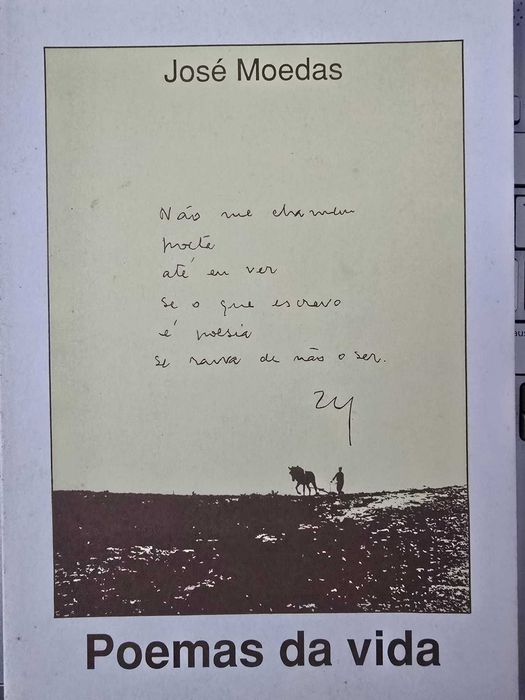 José Moedas
Não me chamem
poeta
até eu ver
se o que escrevo
é poesia
se raiva de não o ser.
Poemas da vida